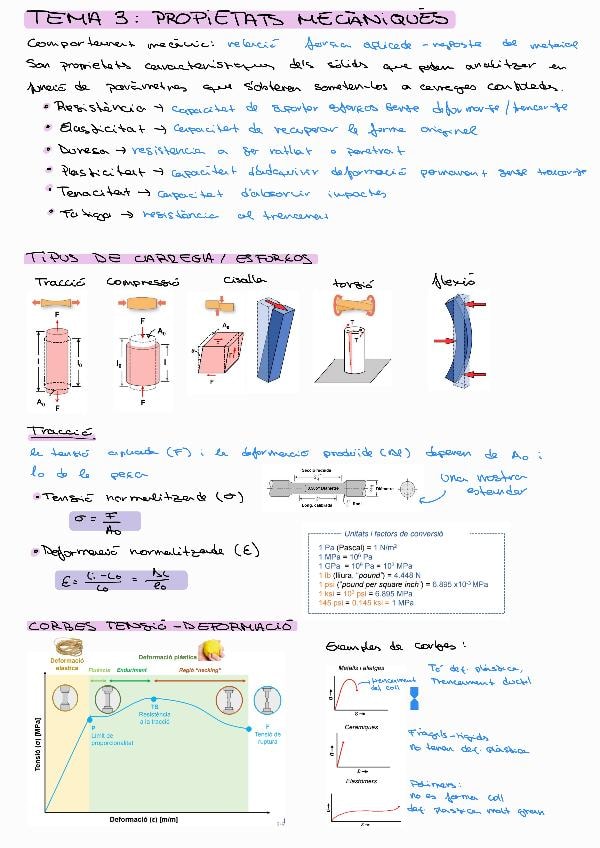 TEMA 3: PROPIETATS MECÀNIQUES
Comportament mecànic: relació força aplicada - resposta del material
Són propietats característiques dels sòlids que poden analitzar en
funció de paràmetres que s'obtenen sometent-los a càrregues controlades.
• Resistència → capacitat de suportar esforços sense deformar-se/trencar-se
• Elasticitat → capacitat de recuperar la forma original
• Duresa → resistència a ser ratllat o penetrat
• Plasticitat → capacitat d'adquirir deformació permanent sense trencar-se
• Tenacitat → capacitat d'absorvir impactes
• Fatiga → resistència al trencament
TIPUS DE CÀRREGA / ESFORÇOS
Tracció compressió cisalla torsió flexió
F F A₀ T
l l₀ A₀ l₀ l F
A₀ F F F
Tracció
la tensió aplicada (F) i la deformació produïda (Δl) depenen de A₀ i
l₀ de la peça
Secció reduïda
0.505" Diàmetre
Diàmetre
Long. calibrada
Una mostra
estàndar
• Tensió normalitzada (σ)
σ = F / A₀
• Deformació normalitzada (ε)
ε = (li - l₀) / l₀ = Δl / l₀
Unitats i factors de conversió
1 Pa (Pascal) = 1 N/m²
1 MPa = 10⁶ Pa
1 GPa = 10⁹ Pa = 10³ MPa
1 lb (lliura, "pound") = 4.448 N
1 psi ("pound per square inch") = 6.895 x10⁻³ MPa
1 ksi = 10³ psi = 6.895 MPa
145 psi = 0.145 ksi = 1 MPa
CORBES TENSIÓ-DEFORMACIÓ
Deformació elàstica
Deformació plàstica
Fluència Enduriment Regió "necking"
TS
Resistència a la tracció
P
Límit de proporcionalitat
F
Tensió de ruptura
Tensió (σ) [MPa]
Deformació (ε) [m/m]
Exemples de corbes:
Metalls i aliatges
trencament del coll
Té def. plàstica,
Trencament dúctil
Ceràmiques
Fràgils - rígids
no tenen def. plàstica
Elastòmers
Polímers:
no es forma coll
def. plàstica molt gran